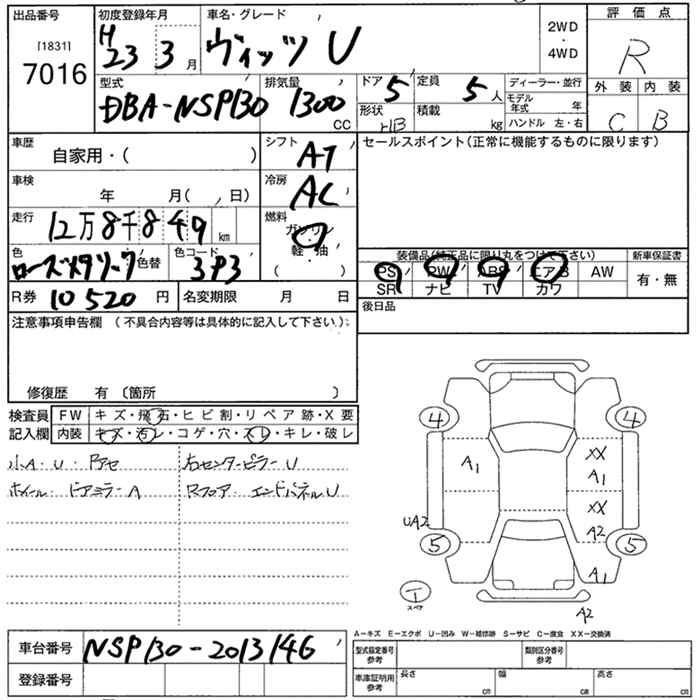 出品番号
[1831]
7016
初度登録年月
H
23 3 月
車名・グレード
ヴィッツ U
2WD
・
4WD
評価点
R
外装 内装
C B
型式
DBA-NSP130
排気量
1300
CC
ドア 5
定員 5 人
形状 HB
積載 kg
ディーラー・並行
モデル年式 年
ハンドル 左・右
車歴
自家用・( )
車検
年 月( 、日)
走行
12万8千849 km
色
ローズメタリック
色替
色コード
3P3
シフト
AT
冷房
AC
燃料
ガソリン
軽・油
( )
セールスポイント(正常に機能するものに限ります)
装備品(純正品に限り丸をつけて下さい)
PS PW ABS エアB AW
SR ナビ TV カワ
新車保証書
有・無
R券 10520 円
名変期限 月 日
後日品
注意事項申告欄 (不具合内容等は具体的に記入して下さい。)
修復歴 有 〔箇所 〕
検査員
記入欄
FW キズ・飛石・ヒビ割・リペア跡・X要
内装 キズ・汚レ・コゲ・穴・スレ・キレ・破レ
小A・U・Pアセ
右センターピラーU
ホイール・ドアミラーA
Rフロア・エンドパネルU
4 4
A1
XX
A1
XX
A2
UA2
5 5
A1
T
スペア
A2
A-キズ E-エクボ U-凹み W-補修跡 S-サビ C-腐食 XX-交換済
車台番号
NSP130-2013146
登録番号
型式指定番号
参考
類別区分番号
参考
車庫証明用
参考
長さ cm
幅 cm
高さ cm